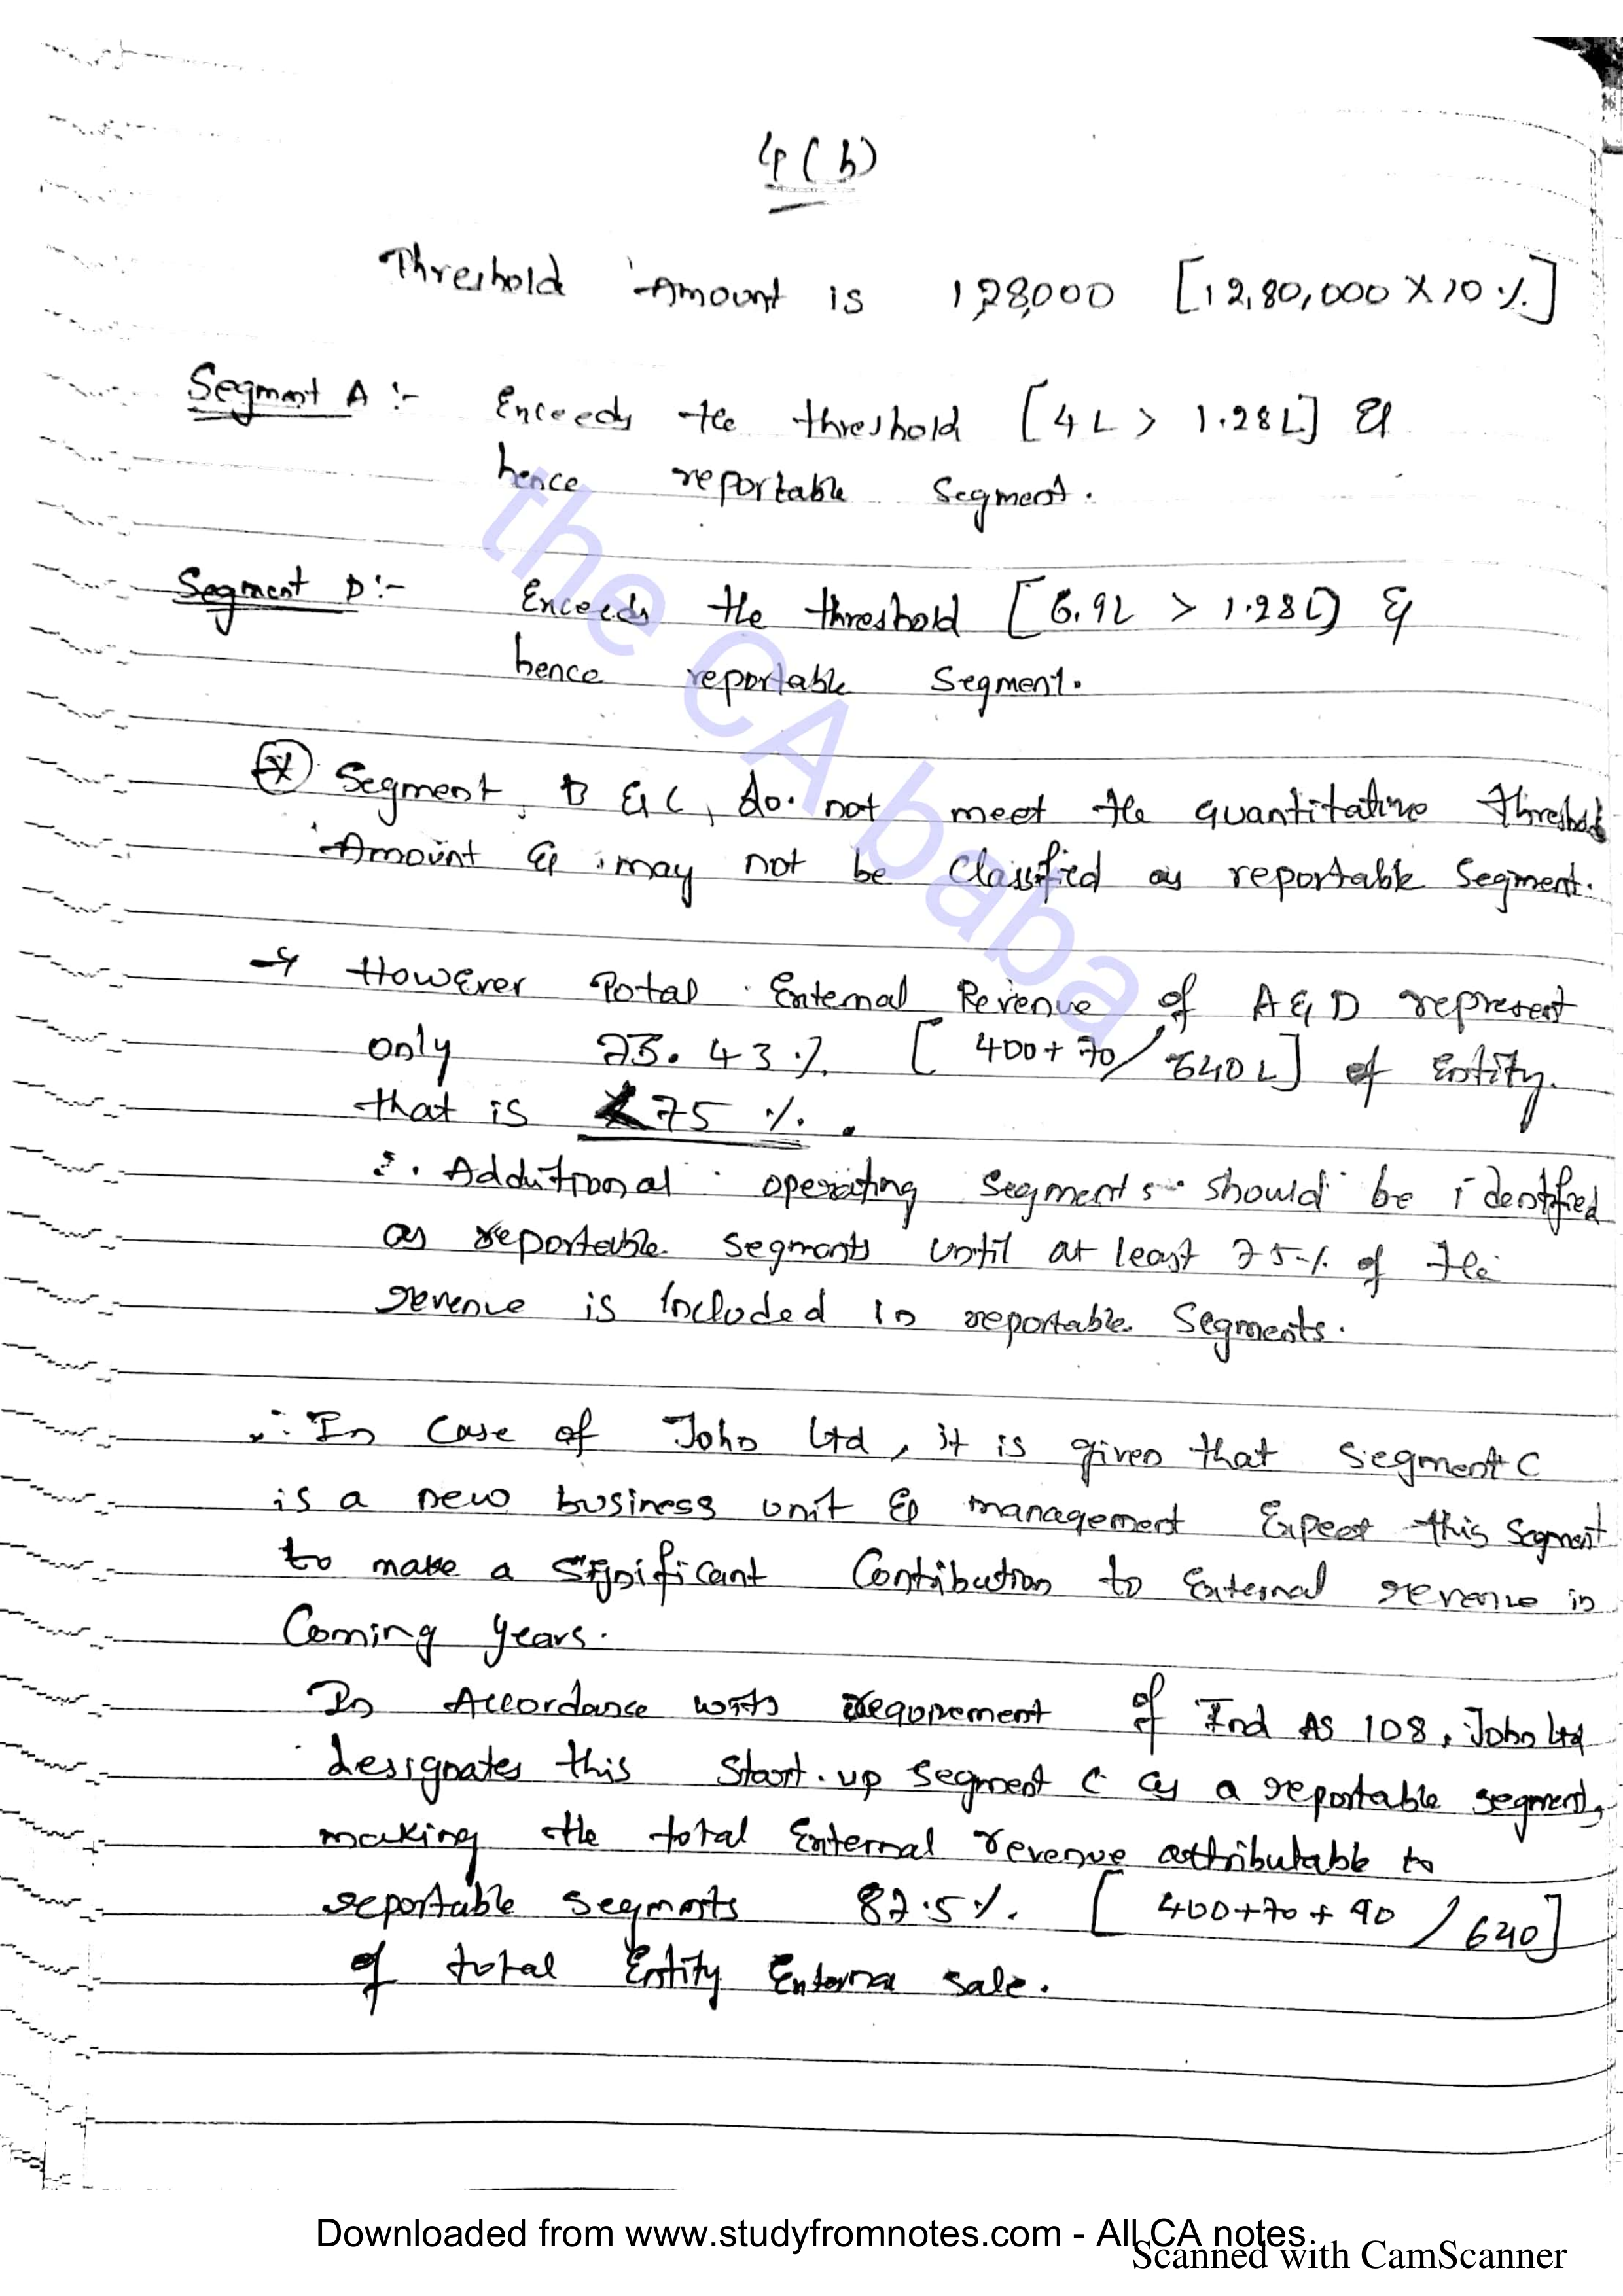 4(b)
Threshold Amount is 1,28,000 [12,80,000 X 10 %.]
Segment A :- Exceeds the threshold [4L > 1.28L] &
hence reportable Segment.
Segment D :- Exceeds the threshold [6.9L > 1.28L] &
hence reportable Segment.
* Segment B & C, do not meet the quantitative threshold
Amount & may not be Classified as reportable Segment.
→ However Total External Revenue of A & D represent
only 73.43 %. [400+70/640L] of Entity.
that is <75 %.
∴ Additional operating Segments should be identified
as reportable segments until at least 75% of the
revenue is included in reportable Segments.
∴ In Case of John Ltd, it is given that Segment C
is a new business unit & management Expect this Segment
to make a Significant Contribution to External revenue in
Coming years.
In Accordance with requirement of Ind AS 108, John Ltd
designates this Start-up Segment C as a reportable segment,
making the total External revenue attributable to
reportable segments 87.5%. [400+70+90/640]
of total Entity External sale.
the CA baba
Downloaded from www.studyfromnotes.com - All CA notes
Scanned with CamScanner